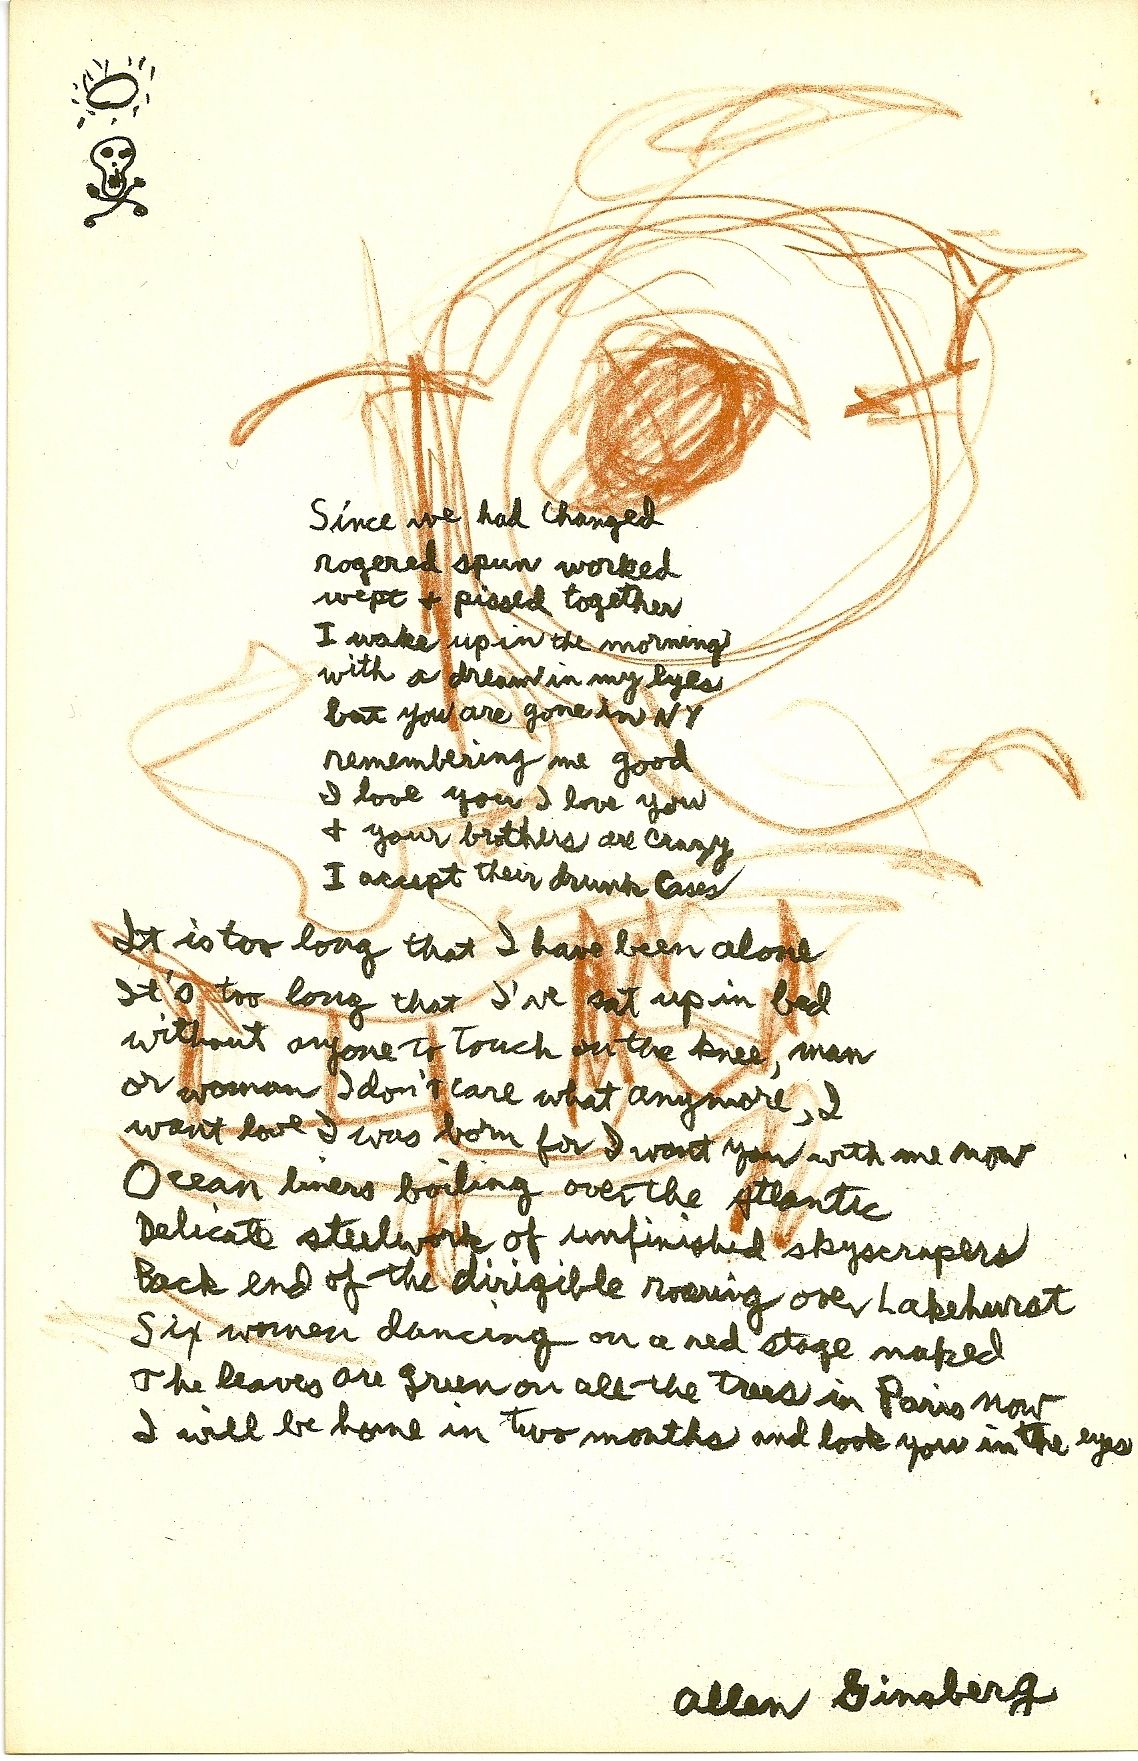 Since we had changed
rogered spun worked
wept + pissed together
I wake up in the morning
with a dream in my eyes
but you are gone in NY
remembering me good
I love you I love you
+ your brothers are crazy
I accept their drunk cases
It is too long that I have been alone
It's too long that I've sat up in bed
without anyone to touch on the knee, man
or woman I don't care what anymore, I
want love I was born for I want you with me now
Ocean liners boiling over the Atlantic
Delicate steelwork of unfinished skyscrapers
Back end of the dirigible roaring over Lakehurst
Six women dancing on a red stage naked
The leaves are green on all the trees in Paris now
I will be home in two months and look you in the eyes
Allen Ginsberg